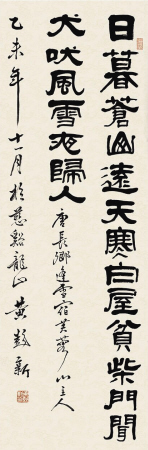 日暮蒼山遠天寒白屋貧柴門聞
犬吠風雪夜歸人
唐長卿逢雪宿芙蓉山主人
乙未年十一月於慈谿龍山黃新